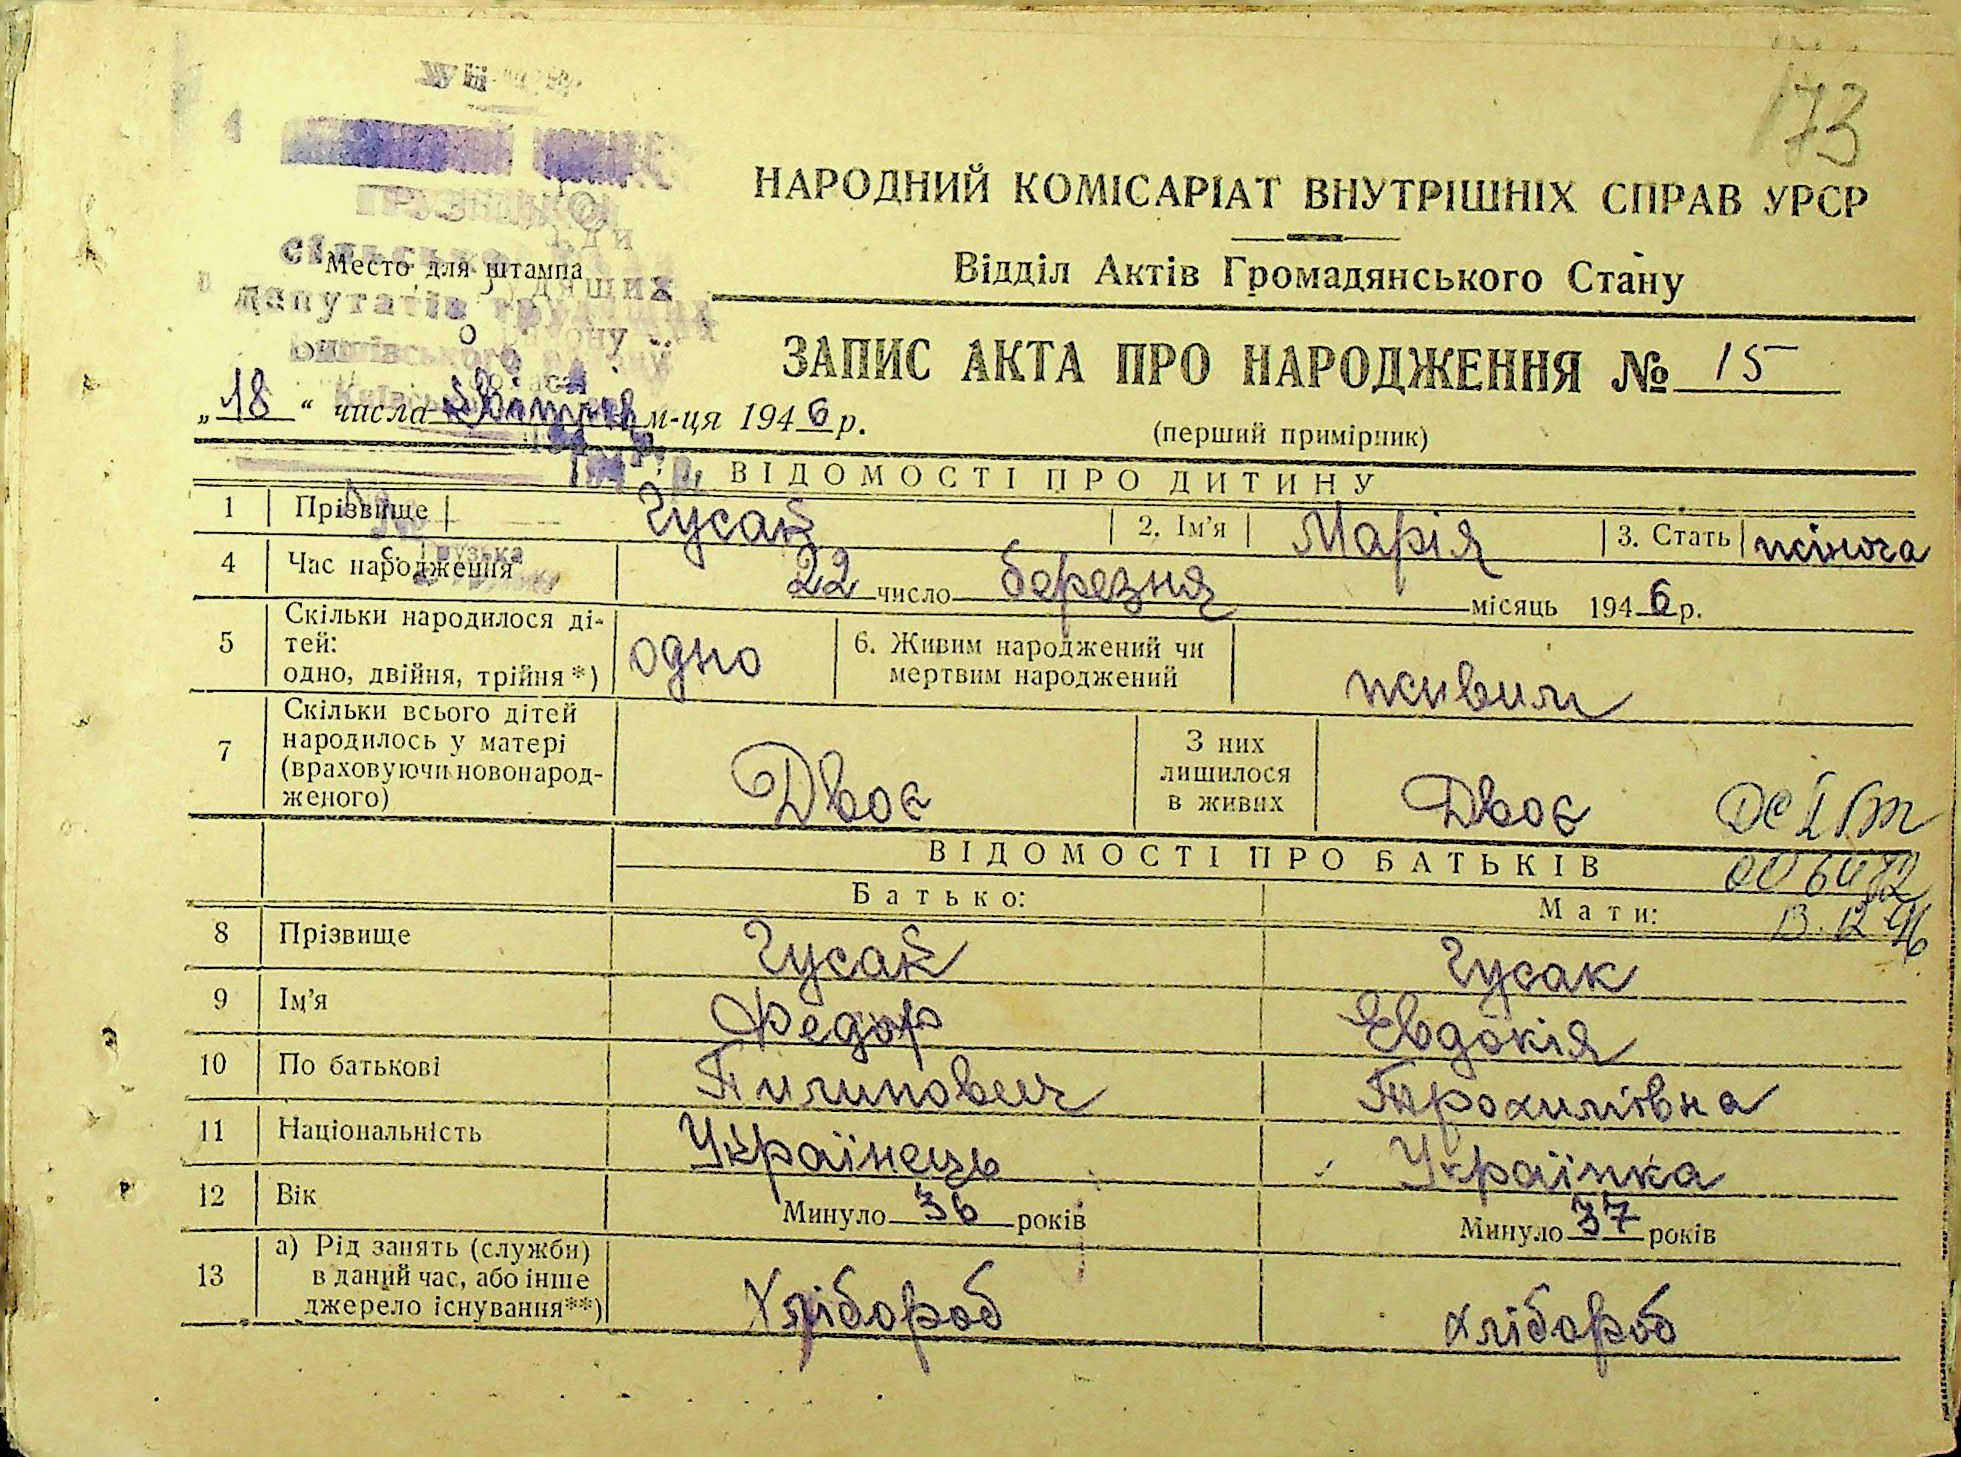 173
НАРОДНИЙ КОМІСАРІАТ ВНУТРІШНІХ СПРАВ УРСР
Відділ Актів Громадянського Стану
сільсько
Место для штампа
депутатів трудящих
Київсько
ЗАПИС АКТА ПРО НАРОДЖЕННЯ № 15
„18“ числа м-ця 1946 р.
(перший примірник)
ВІДОМОСТІ ПРО ДИТИНУ
1 Прізвище Гусак 2. Ім'я Марія 3. Стать жіноча
с. Грузька
4 Час народження 22 число березня місяць 1946 р.
5 Скільки народилося ді-
тей:
одно, двійня, трійня *) одно 6. Живим народжений чи
мертвим народжений живим
7 Скільки всього дітей
народилось у матері
(враховуючи новонарод-
женого) Двоє З них
лишилося
в живих Двоє
ВІДОМОСТІ ПРО БАТЬКІВ
Батько: Мати:
13.12.96
8 Прізвище Гусак Гусак
9 Ім'я Федор Євдокія
10 По батькові Пилипович Трохимівна
11 Національність Українець Українка
12 Вік Минуло 36 років Минуло 37 років
13 а) Рід занять (служби)
в даний час, або інше
джерело існування**) Хлібороб хлібороб